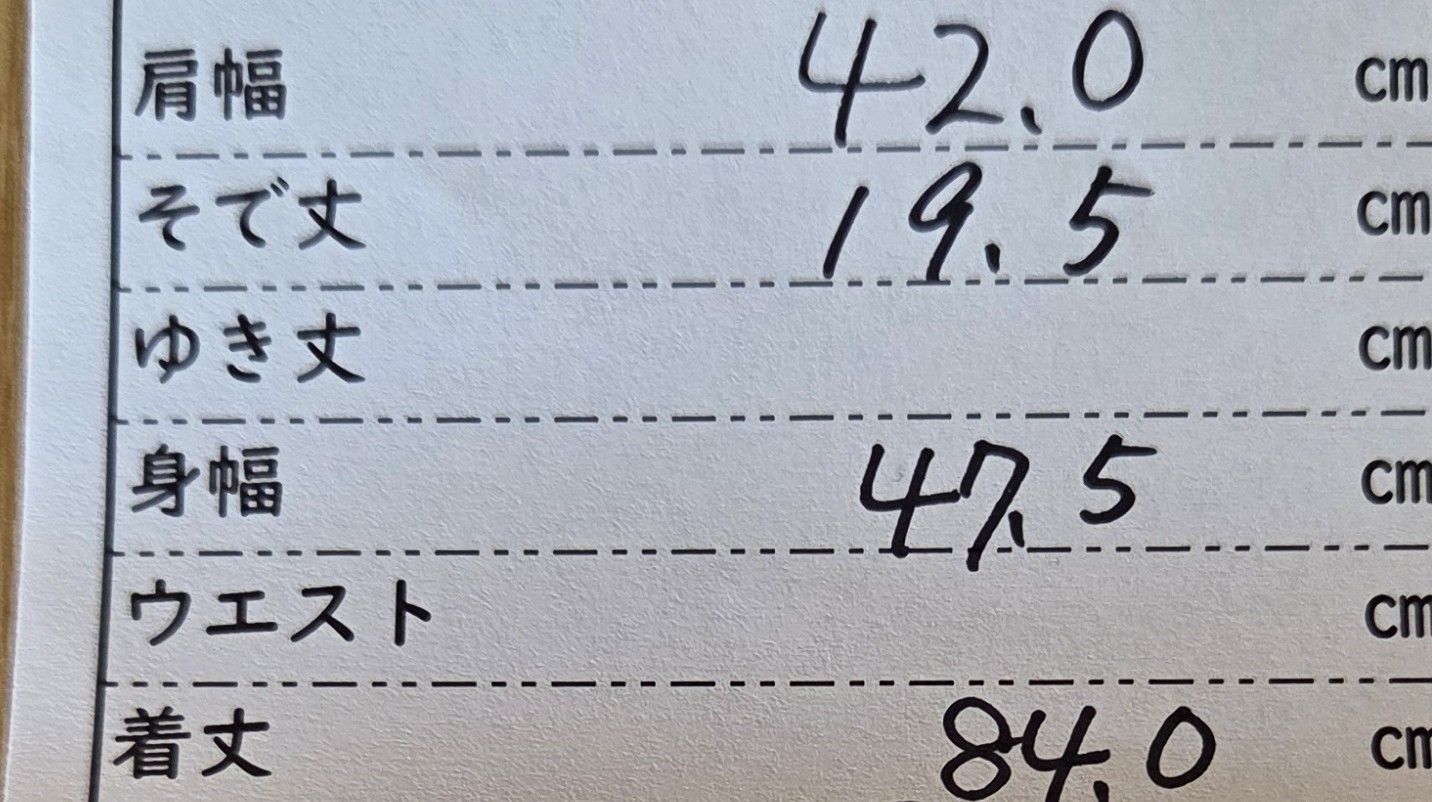 肩幅 42.0 cm
そで丈 19.5 cm
ゆき丈 cm
身幅 47.5 cm
ウエスト cm
着丈 84.0 cm